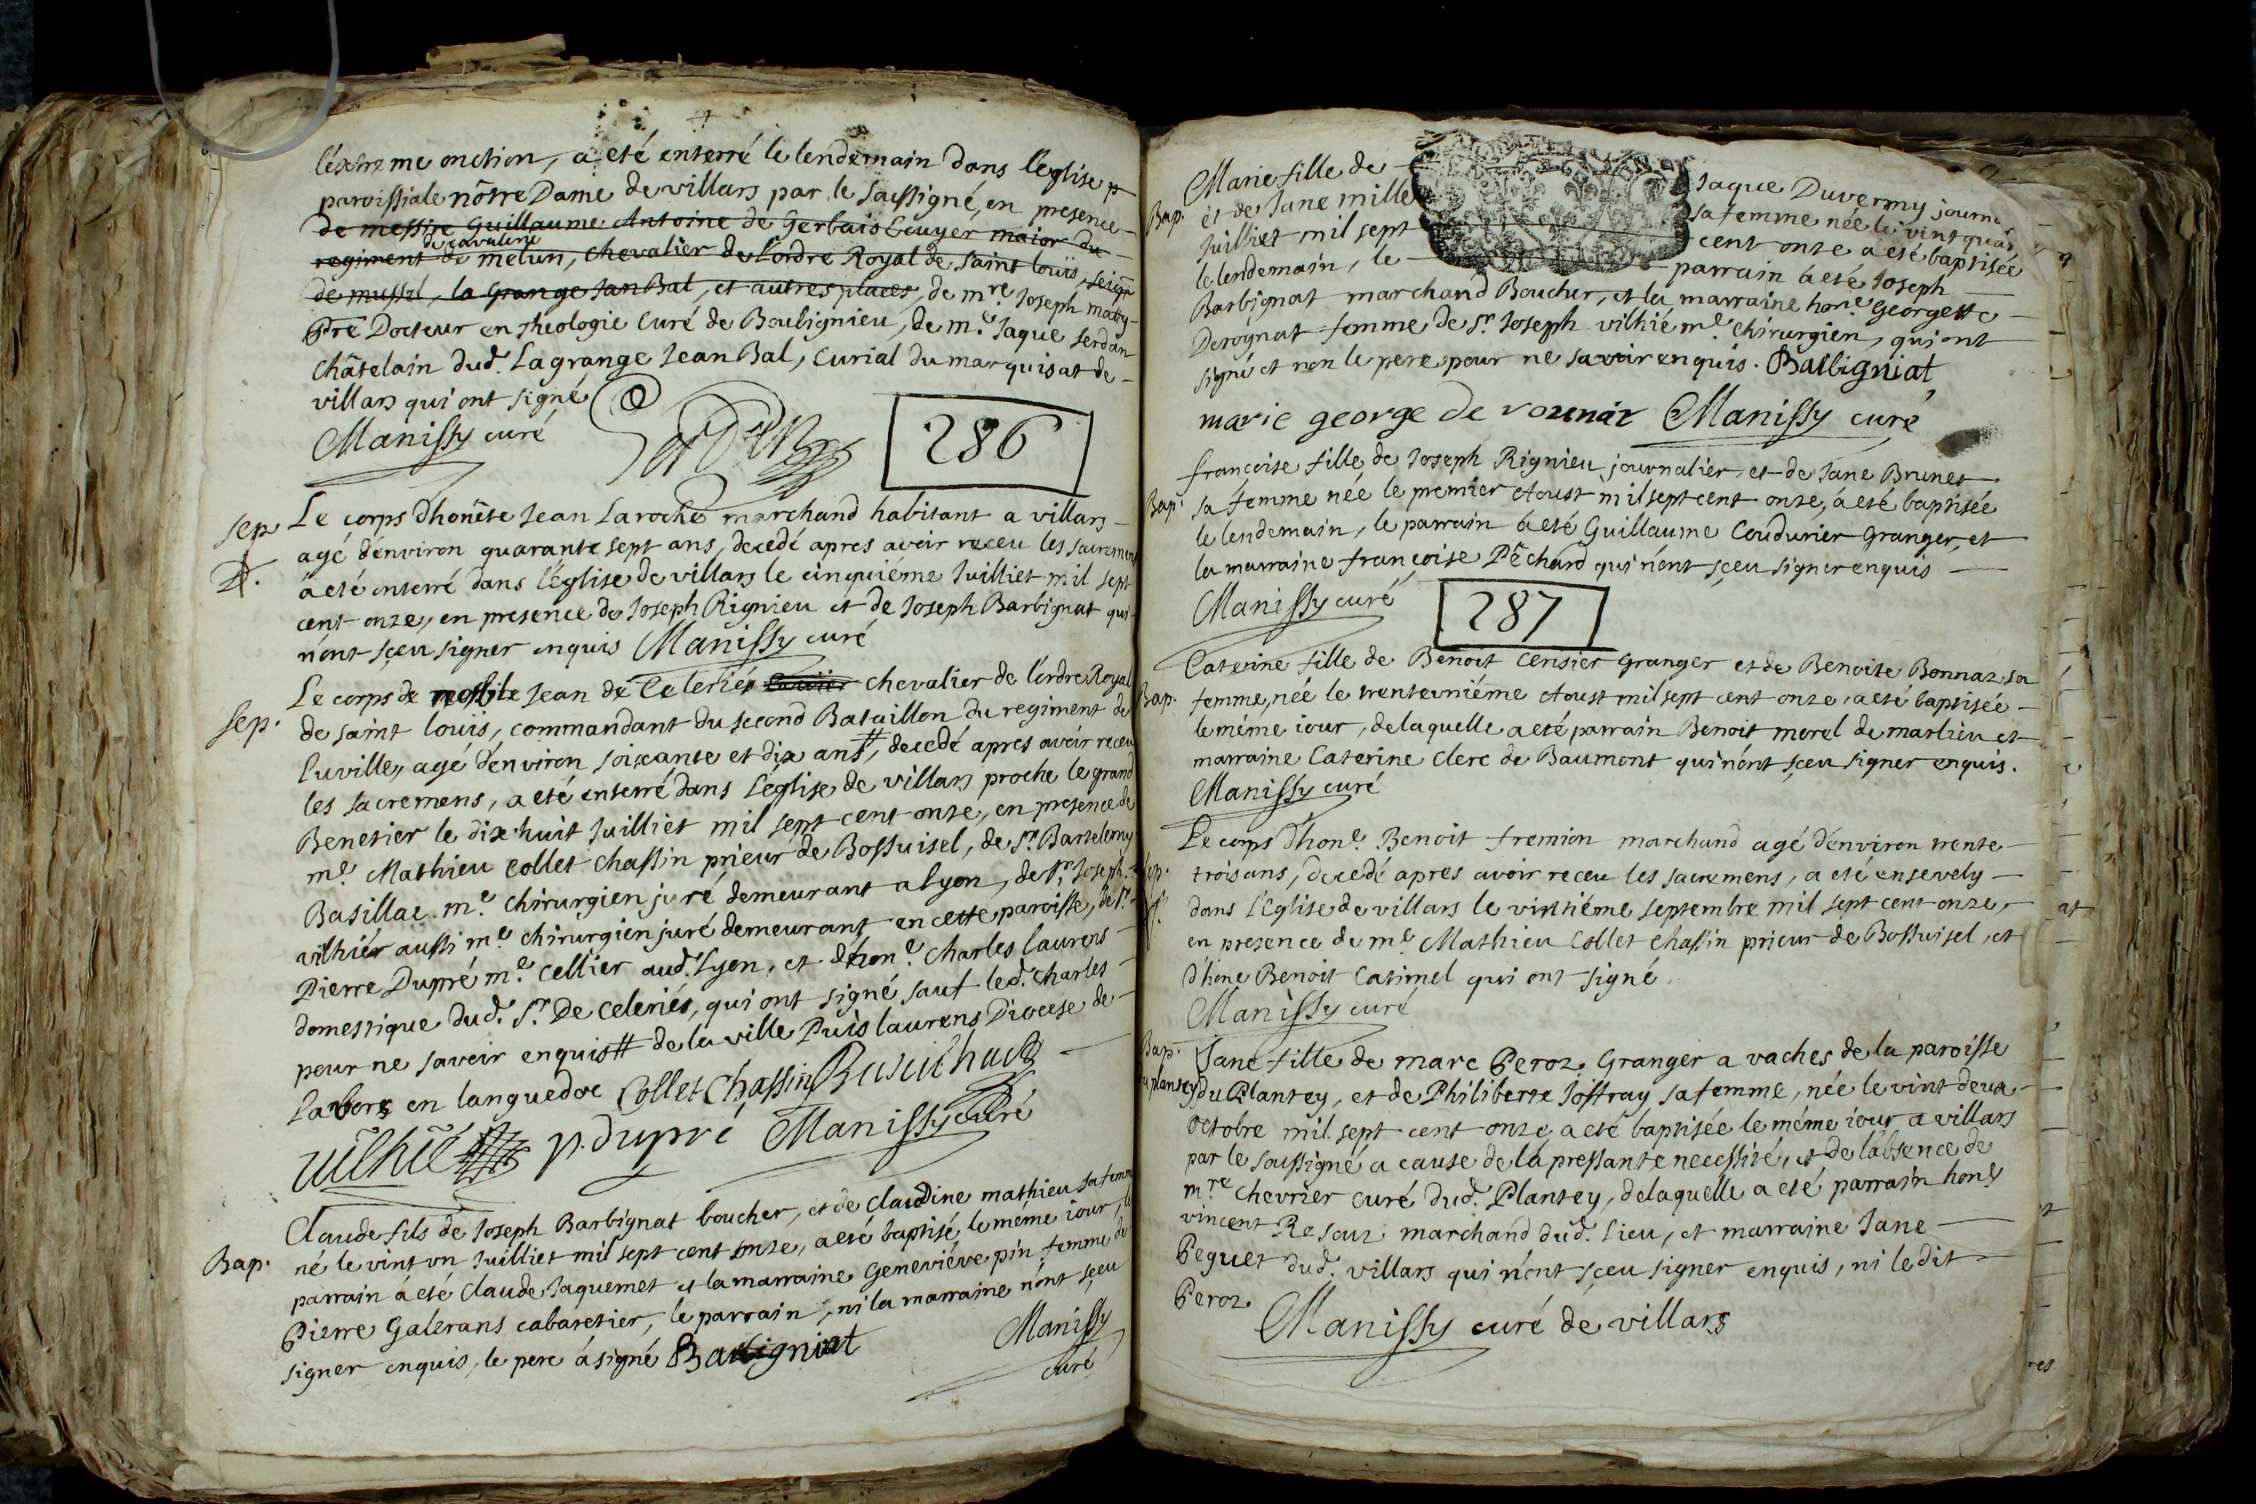 l'éxtreme onction, a eté enterré le lendemain dans l'eglise p
paroissiale nôtre Dame de villars par le saussigné, en presence
de messire Guillaume Antoine de Gerbais Ecuyer maior du
de cavalerie
regiment de melun, chevalier de l'ordre Royal de saint louis, seigr
de mussel, la Grange Jan Bal, et autres places, de mre Joseph mathy
Pre Docteur en theologie Curé de Boulignieu, de me Jaque serdan
châtelain dud. Lagrange Jean Bal, Curial du marquisat de
villars qui ont signé
Manissy curé
286
sep. Le corps d'honête Jean Laroche marchand habitant a villars
agé d'environ quarante sept ans, decedé apres avoir receu les sacremens
a eté enterré dans l'église de villars le cinquiéme Juilliet mil sept
cent onze, en presence de Joseph Rignieu et de Joseph Barbignat qui
n'ont sçeu signer enquis Manissy curé
sep. Le corps de noble Jean de Celeriés chevalier de l'ordre Royal
de saint louis, commandant du second Bataillon du regiment de
Luville, agé d'environ soixante et dix ans#, decedé apres avoir receu
les sacremens, a eté enterré dans l'église de villars proche le grand
Benetier le dix huit Juilliet mil sept cent onze, en presence de
me Mathieu Collet Chassin prieur de Bossuisel, de sr Bartelemy
Basillac me chirurgien juré demeurant a lyon, de sr Joseph
vilhiér aussi me chirurgien juré demeurant en cette paroisse, de sr
Pierre Dupré me Cellier aud. Lyon, et d'hone Charles laurens
domestique dud. sr De Celeriés, qui ont signé sauf led. Charles
pour ne savoir enquis # de la ville Puis laurens Diocese de
Lavors en languedoc Collet Chassin Basilhac
vilhié p. dupré Manissy curé
Bap. Claude fils de Joseph Barbignat boucher, et de Claudine mathieu sa femme
né le vint un Juilliet mil sept cent onze, a eté baptisé le méme iour, le
parrain á eté Claude Jaquemet et la marraine Geneviéve pin femme de
Pierre Galerans cabaretier, le parrain, ni la marraine n'ont sçeu
signer enquis, le pere á signé Barbigniat
Manissy
curé
Marie fille de Jaque Duverny journa
Bap. et de Jane mille sa femme née le vint quat
Juilliet mil sept cent onze a eté baptisée
le lendemain, le parrain á eté Joseph
Barbignat marchand Boucher, et la marraine hone Georgette
Derognat femme de sr Joseph vilhié me chirurgien, qui ont
signé et non le pere pour ne savoir enquis. Barbigniat
marie george de Manissy curé
françoise fille de Joseph Rignieu journalier et de Jane Brunet
Bap. sa femme née le premier Aoust mil sept cent onze, á eté baptisée
le lendemain, le parrain á eté Guillaume Coudurier Granger, et
la marraine françoise Pêchard qui n'ont sçeu signer enquis
Manissy curé
287
Caterine fille de Benoit Censier Granger et de Benoite Bonnaz sa
Bap. femme, née le trenteuniéme Aoust mil sept cent onze, a eté baptisée
le méme iour, de laquelle a eté parrain Benoit morel de marlieu et
marraine Caterine Clerc de Baumont qui n'ont sçeu signer enquis.
Manissy curé
Le corps d'hone Benoit fremion marchand agé d'environ trente
sep. trois ans, decedé apres avoir receu les sacremens, a eté ensevely
dans l'Eglise de villars le vintiéme septembre mil sept cent onze,
en presence de me Mathieu Collet Chassin prieur de Bossuisel, et
d'hone Benoit Catimel qui ont signé
Manissy curé
Bap. Jane fille de marc Peroz Granger a vaches de la paroisse
du plantey du Plantey, et de Philiberte Joffray sa femme, née le vint deux
octobre mil sept cent onze a eté baptisée le méme iour a villars
par le soussigné a cause de la pressante necessité, et de l'absence de
mre Chevrier curé dud. Plantey, de laquelle a eté parrain hone
vincent Resouz marchand dud. Lieu, et marraine Jane
Peguet dud. villars qui n'ont sçeu signer enquis, ni le dit
Peroz
Manissy curé de villars